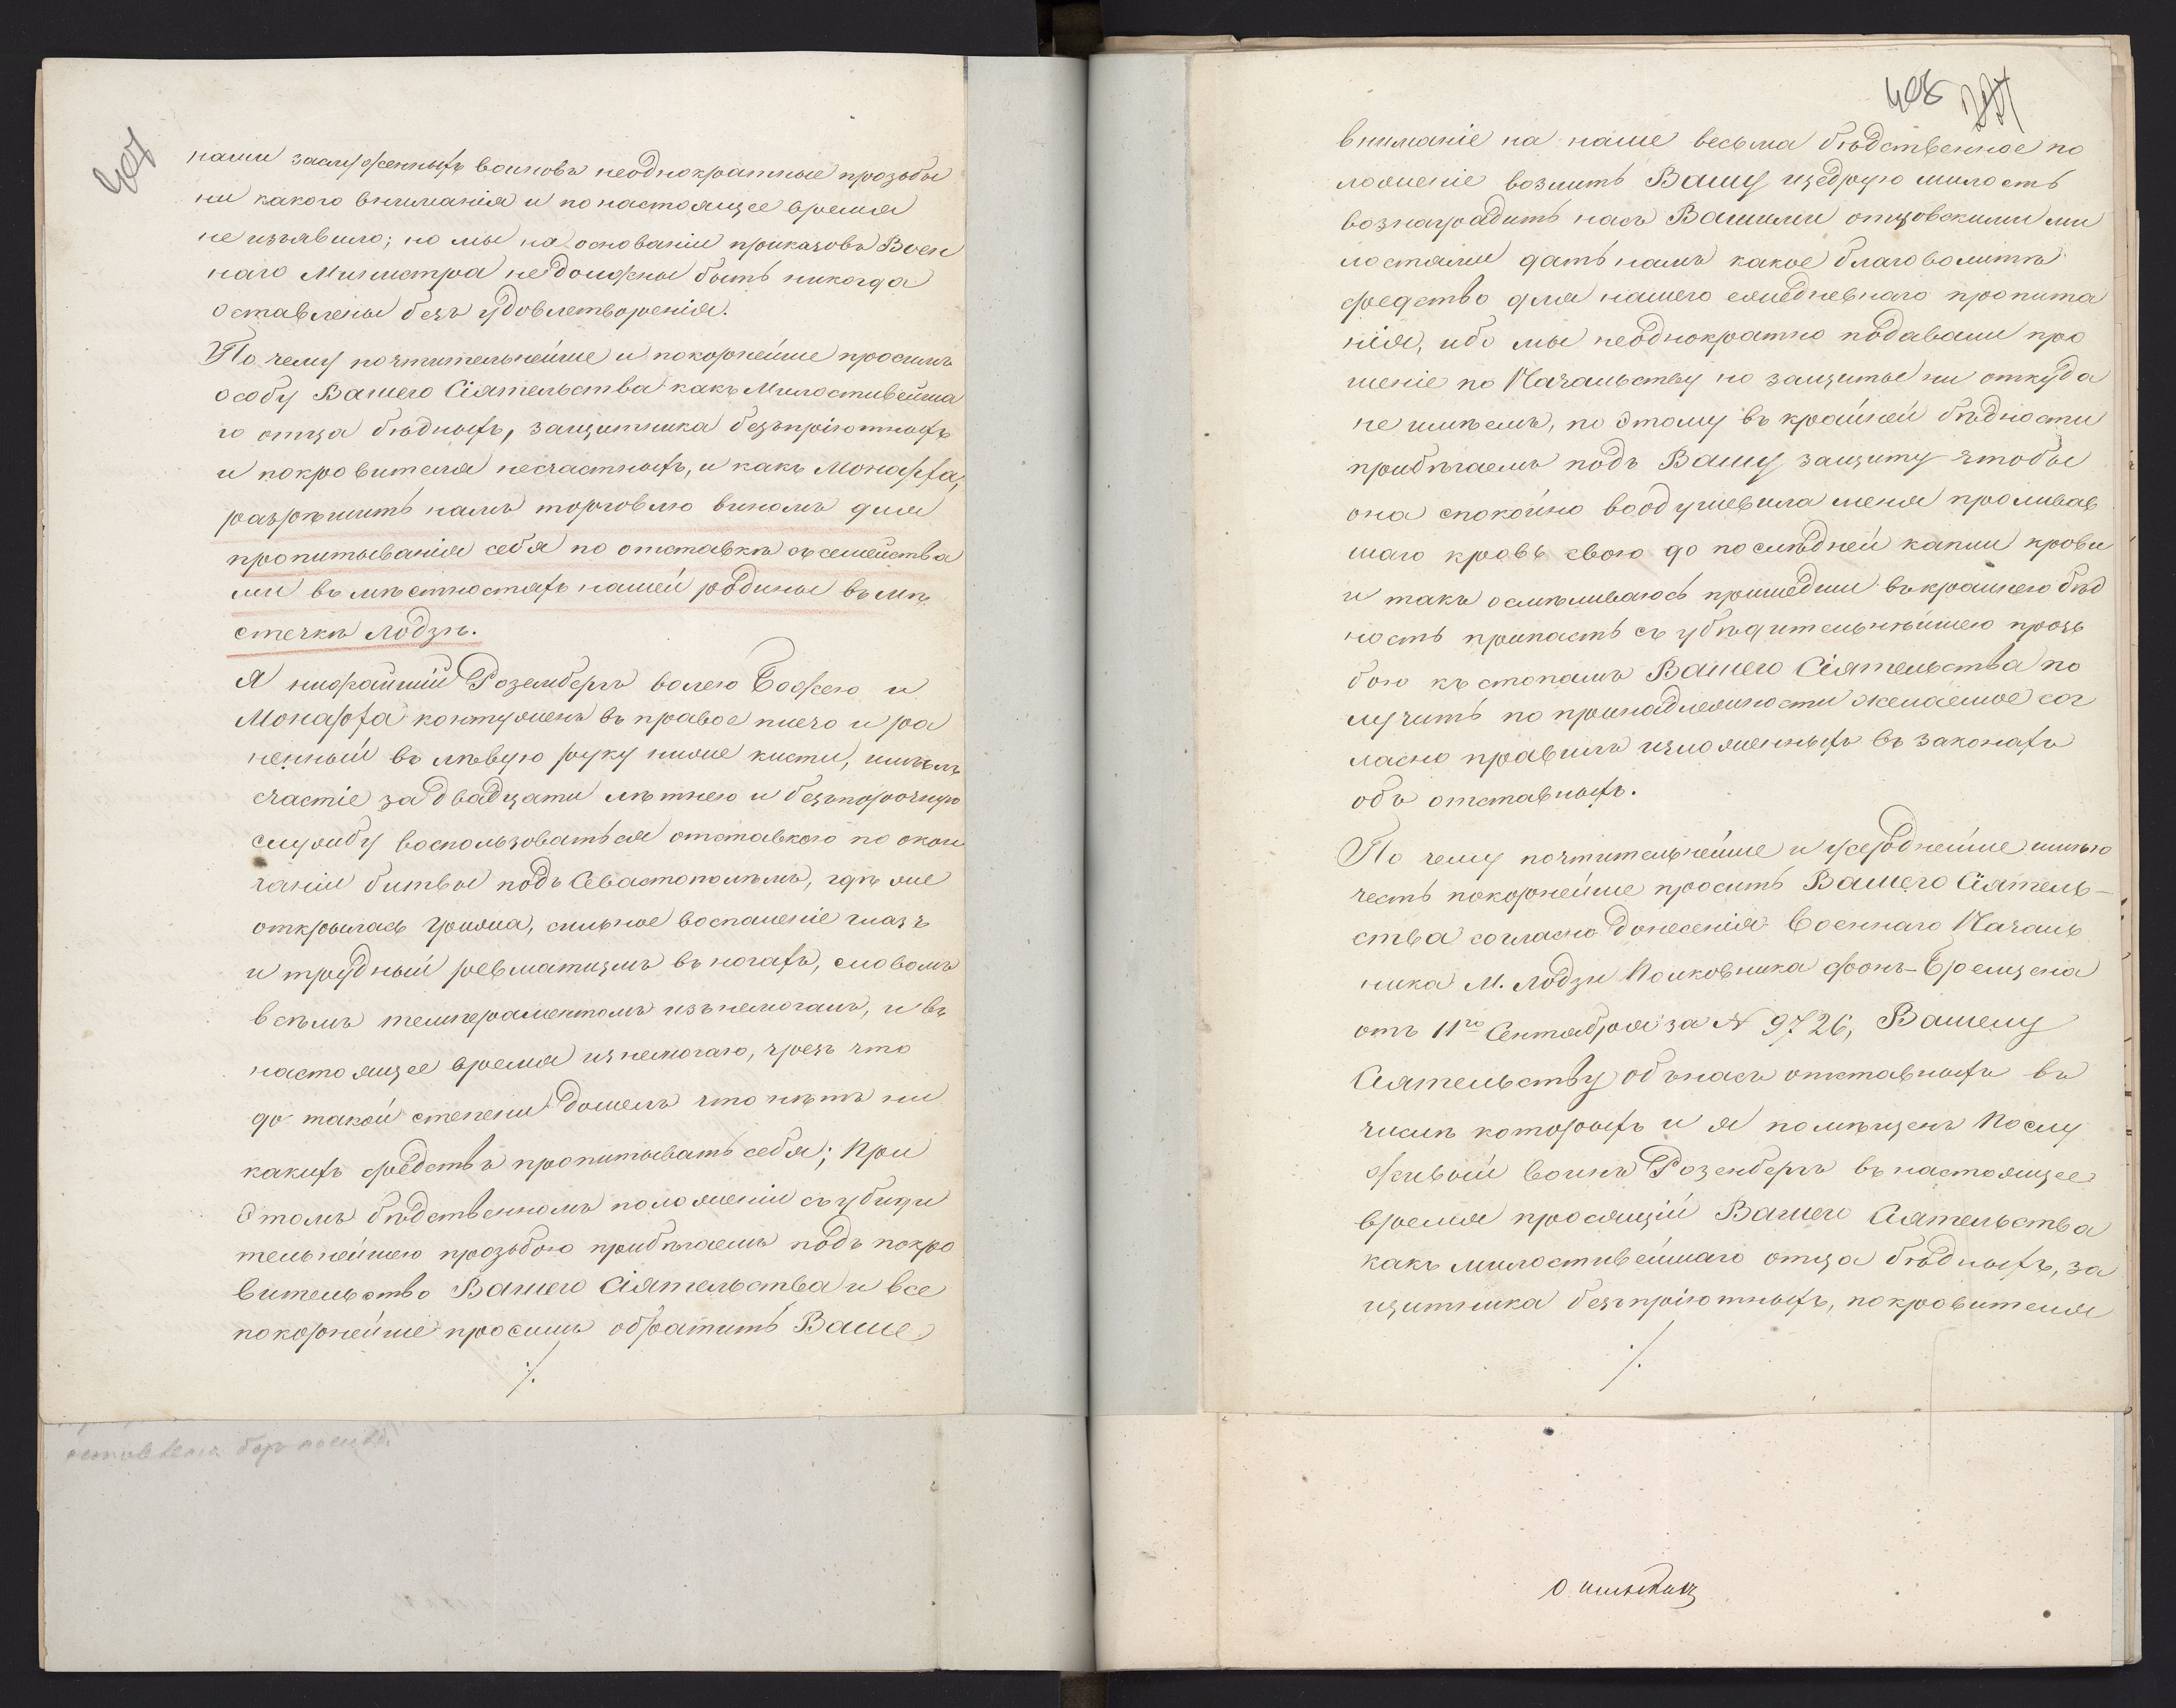 407
наши заслуженныхъ воиновъ неоднократные прозьбы
ни какого вниманія и по настоящее время
не изъявило; но мы на основаніи приказовъ Воен
наго Министра не должны быть никогда
оставлены безъ удовлетворенія.
По чему почтительнейше и покорнейше просимъ
особу Вашего Сіятельства какъ Милостивейша
го отца бѣдныхъ, защитника безъпріютныхъ
и покровителя несчастныхъ, и какъ Монарха,
разрѣшить намъ торговлю виномъ для
пропитыванія себя по отставкѣ съ семейства
ми въ мѣстностяхъ нашей родины въ мѣ
стечкѣ Лодзѣ.
Я нижайшій Розембергъ волею Божею и
Монарха контуженъ въ правое плечо и ра
ненный въ лѣвую руку ниже кисти, имѣлъ
счастіе за двадцати лѣтнею и безъпорочную
службу воспользоваться отставкою по окон
чаніи битвы подъ Севастополѣмъ, гдѣ же
открылась грыжа, сильное воспаленіе глазъ
и трудный ревматизмъ въ ногахъ, словомъ
всѣмъ темпераментомъ изънемогалъ, и въ
настоящее время изнемогаю, чрезъ что
до такой степени дошелъ что нѣтъ ни
какихъ средствъ пропитывать себя; При
этомъ бѣдственномъ положеніи съ убиди
тельнейшею прозьбою прибѣгаемъ подъ покро
вительство Вашего Сіятельства и все
покорнейше просимъ обратить Ваше
./.
408
вниманіе на наше весьма бѣдственное по
ложеніе возлить Вашу щедрую милость
вознаградить насъ Вашими отцовскими ми
лостями дать намъ какое благоволитъ
средство для нашего ежедневнаго пропита
нія, ибо мы неоднократно подавали про
шеніе по Начальству но защиты ни откуда
не имѣемъ, по этому въ крайней бѣдности
прибѣгаемъ подъ Вашу защиту чтобы
она спокойно воодушевила меня проливав
шаго кровь свою до послѣдней капли крови
и такъ осмѣливаюсь пришедши въ крайнею бѣд
ность припасть съ убѣдительнѣйшею прозь
бою къ стопамъ Вашего Сіятельства по
лучить по принадлежности желаемое сог
ласно правилъ изложенныхъ въ законахъ
объ отставныхъ.
По чему почтительнейше и усерднейше имѣю
честь покорнейше просить Вашего Сіятель-
ства согласно донесенія Военнаго Началь
ника М. Лодзи Полковника фонъ-Бремзена
отъ 11го Сентября за N 9726, Вашему
Сіятельству объ насъ отставныхъ въ
числѣ которыхъ и я помѣщенъ послу
живый воинъ Розенбергъ въ настоящее
время просящій Вашего Сіятельства
какъ милостивейшаго отца бѣдныхъ, за
щитника безъпріютныхъ, покровителя
./.